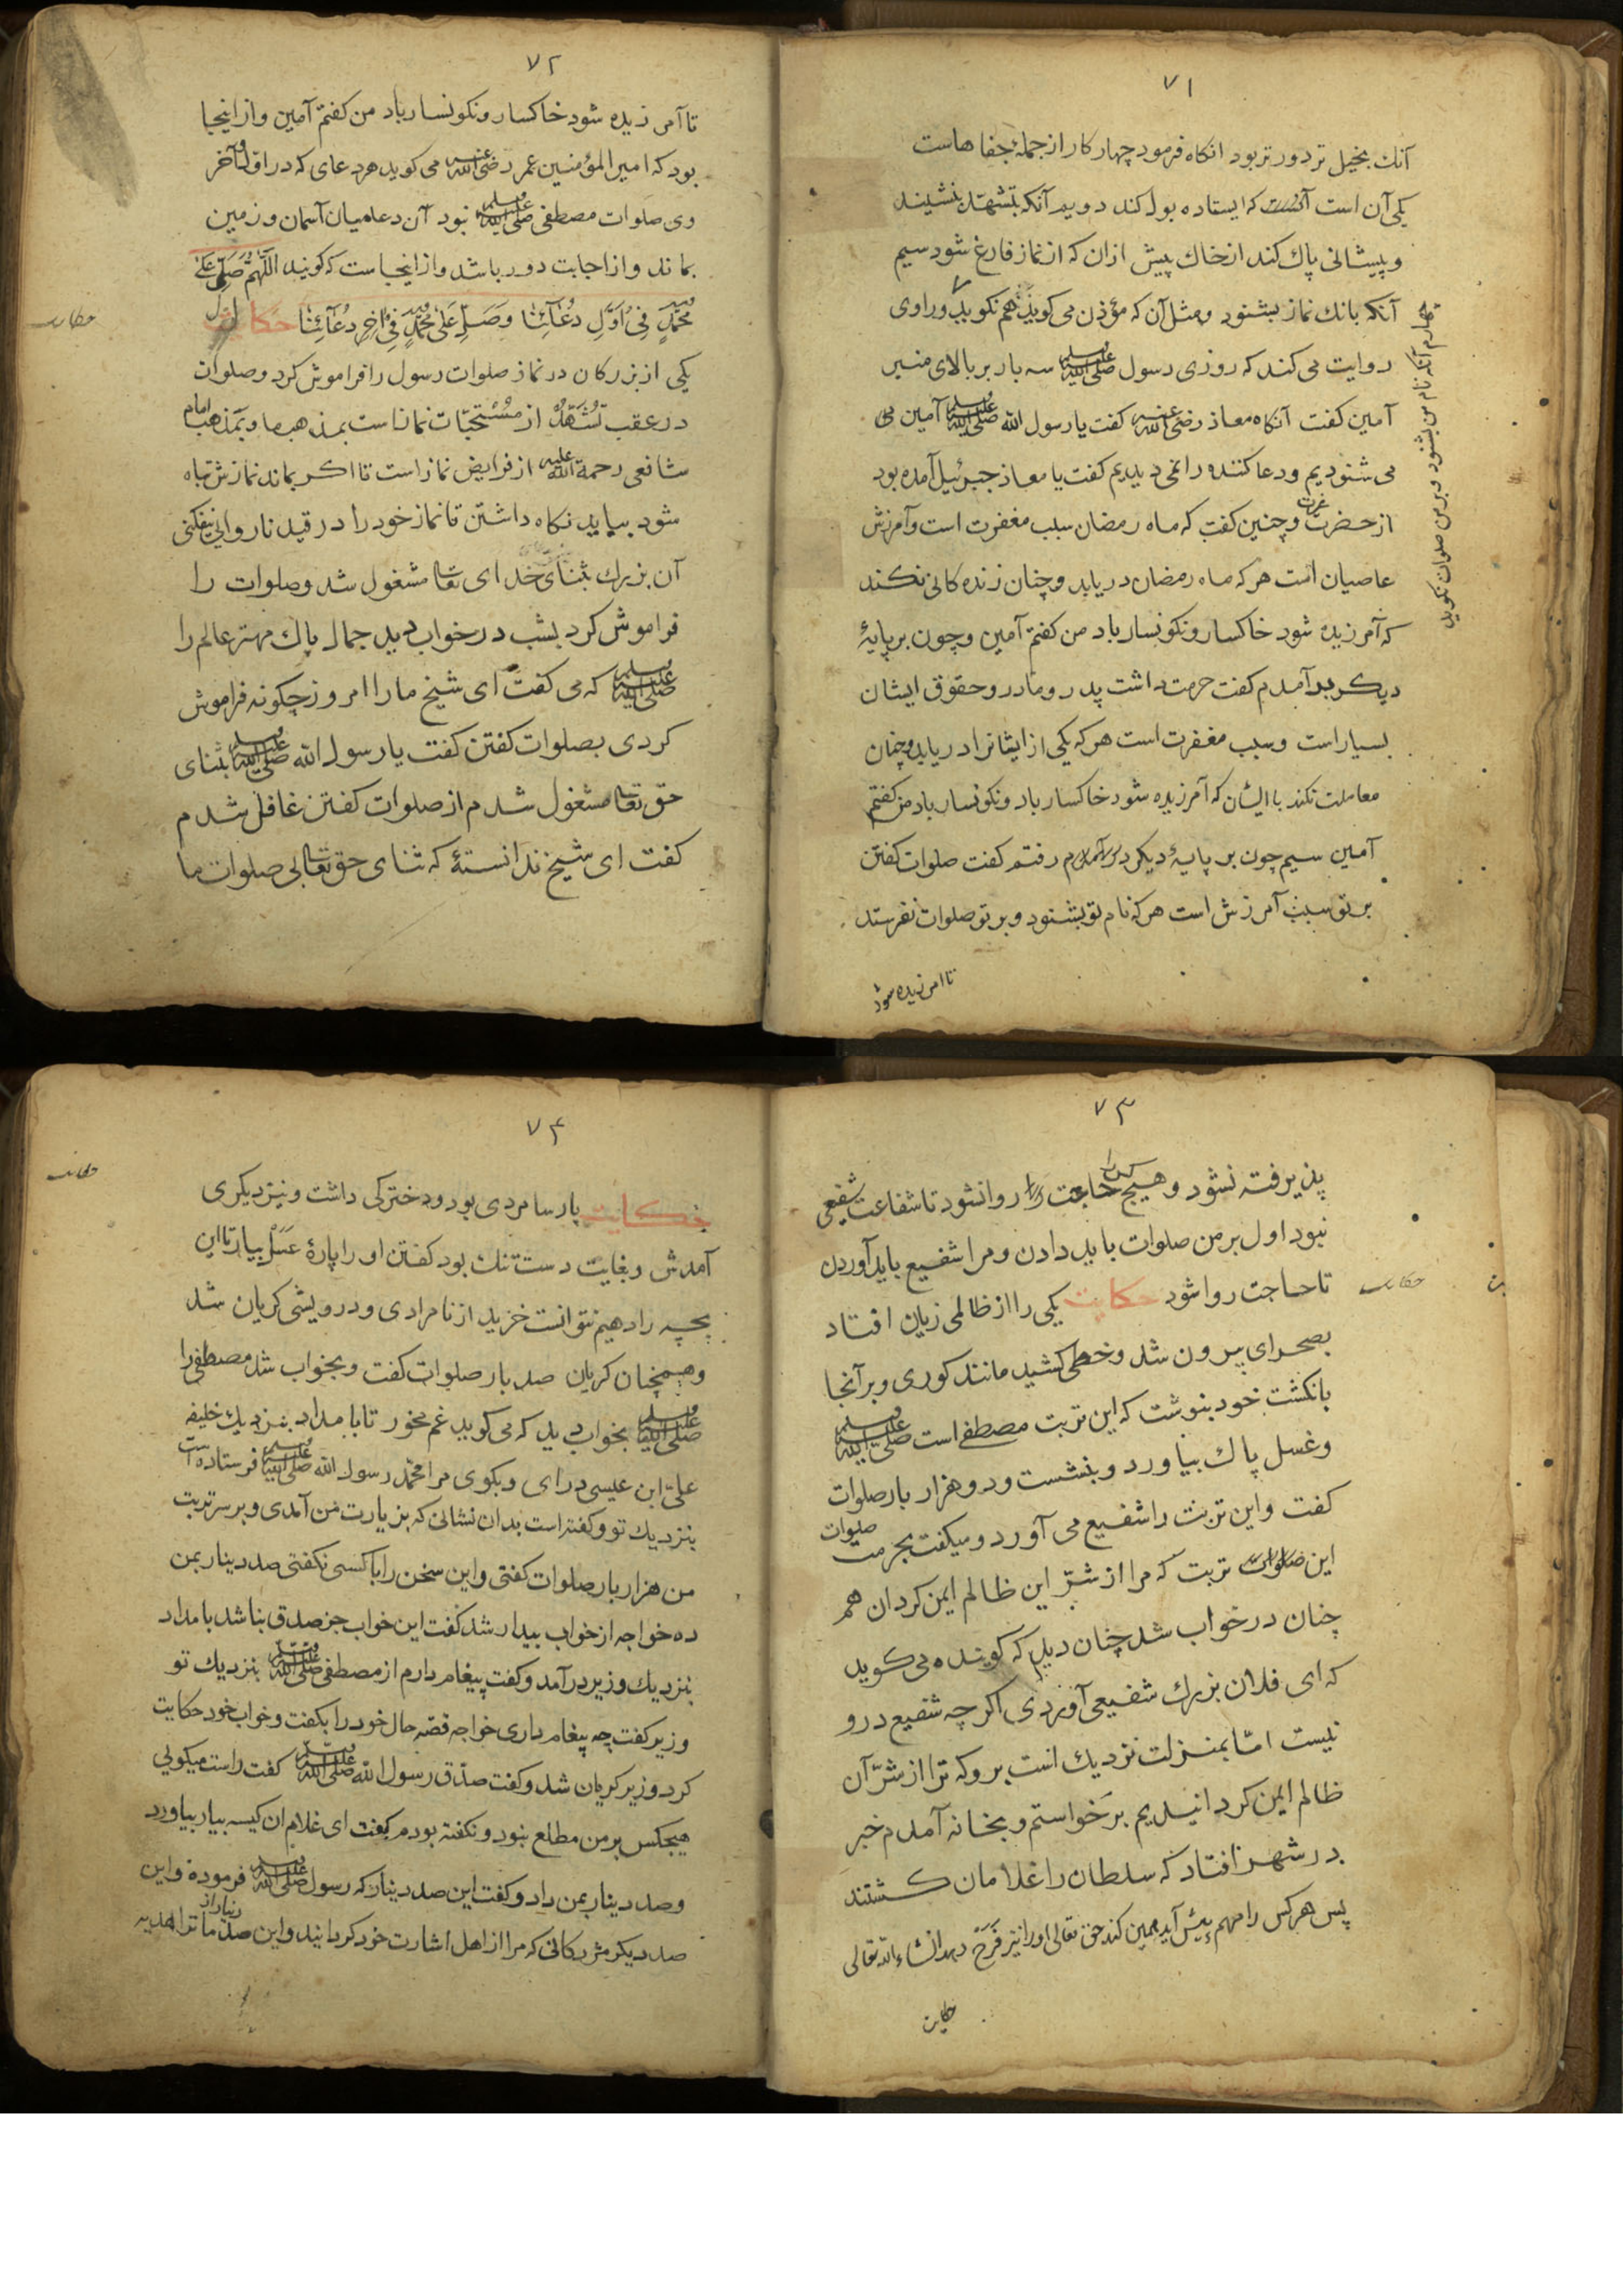 ۷۱
آنك بخیل تر دورتر بود انکاه فرمود چهار کار از جملۀ جفا هاست
یکی آن است آنست که ایستاده بول کند دویم آنکه بتشهّد بنشیند
و پیشانی پاك کند از خاك پیش ازان که از نماز فارغ شود سیم
آنکه بانك نماز بشنود و مثل آن که مؤذن می کوید هم نکوید و راوی
چهارم آنکه نام من بشنود و بر من صلوات نکوید
روایت می کند که روزی رسول صلی الله علیه وسلم سه بار بر بالای منبر
آمین کفت آنکاه معاذ رضی الله عنه کفت یا رسول الله صلی الله علیه وسلم آمین می
می شنودیم و دعا کننده را نمی دیدیم کفت یا معاذ جبرئیل آمده بود
از حضرت عزت و چنین کفت که ماه رمضان سبب مغفرت است و آمرزش
عاصیان است هر که ماه رمضان دریابد و چنان زنده کانی نکند
که آمرزیده شود خاکسار و نکونسار باد من کفتم آمین و چون بر پایۀ
دیکر بر آمدم کفت حرمت داشت پدر و مادر و حقوق ایشان
بسیار است و سبب مغفرت است هر که یکی از ایشانرا دریابد و چنان
معاملت نکند با ایشان که آمرزیده شود خاکسار باد و نکونسار باد من کفتم
آمین سیم چون بر پایۀ دیکر بر آمدم رفتم کفت صلوات کفتن
بر تو سبب آمرزش است هر که نام تو بشنود و بر تو صلوات نفرستد
تا امرزیده شود
۷۲
تا آمرزیده شود خاکسار و نکونسار باد من کفتم آمین و از اینجا
بود که امیر المؤمنین عمر رضی الله عنه می کوید هر دعای که در اوّل و آخر
وی صلوات مصطفی صلی الله علیه وسلم نبود آن دعا میان آسمان و زمین
بماند و از اجابت دور باشد و از اینجاست که کویند اللَّهُمَّ صَلِّ عَلَی
مُحَمَّدٍ فِی اَوَّلِ دُعَآئِنَا وَصَلِّ عَلَی مُحَمَّدٍ فِی اٰخِرِ دُعَآئِنَا حکایت
حکایت
یکی از بزرکان در نماز صلوات رسول را فراموش کرد و صلوات
در عقب تَشَهُّدْ از مُسْتَحَبّات نماز است بمذهب ما و بمذهب امام
شافعی رحمة الله علیه از فرایض نماز است تا اکر بماند نمازش تباه
شود بباید نکاه داشتن تا نماز خود را در قید ناروایی نیفکنی
آن بزرك بثنای خدای تعا مشغول شد و صلوات را
فراموش کرد بشب در خواب دید جمال پاك مهتر عالم را
صلی الله علیه وسلم که می کفت ای شیخ ما را امروز چکونه فراموش
کردی بصلوات کفتن کفت یا رسول الله صلی الله علیه وسلم بثنای
حق تعا مشغول شدم از صلوات کفتن غافل شدم
کفت ای شیخ ندانستۀ که ثنای حق تعالی صلوات ما
۷۳
پذیرفته نشود و هیچ حاجت روا نشود تا شفاعت شفیعی
نبود اول بر من صلوات باید دادن و مرا شفیع باید آوردن
تا حاجت روا شود حکایت یکی را از ظالمی زیان افتاد
حکایت
بصحرای بیرون شد و خطی کشید مانند کوری و بر آنجا
بانکشت خود بنوشت که این تربت مصطفی است صلی الله علیه وسلم
و غسل پاك بیاورد و بنشست و دو هزار بار صلوات
کفت و این تربت را شفیع می آورد و میکفت بحرمت صلوات
این صلوات تربت که مرا از شرّ این ظالم ایمن کردان هم
چنان در خواب شد چنان دید که کوینده می کوید
که ای فلان بزرك شفیعی آوردی اکرچه شفیع درو
نیست امّا بمنزلت نزدیك است برو که ترا از شرّ آن
ظالم ایمن کردانیدیم برخواستم و بخانه آمدم خبر
در شهر افتاد که سلطان را غلامان کشتند
پس هر کس را مهم پیش آید همین کند حق تعالی او را نیز فَرَحْ دهد انشاء الله تعالی
حکایت
۷۴
حکایت
حکایت پارسا مردی بود و دخترکی داشت و نیز دیکری
آمدش و بغایت دست تنك بود کفتن او را پارۀ عَسَل بیار تا این
بچه را دهیم نتوانست خرید از نامرادی و درویشی کریان شد
و همچنان کریان صد بار صلوات کفت و بخواب شد مصطفی را
صلی الله علیه وسلم بخواب دید که می کوید غم مخور تا بامداد بنزدیك خلیفه
علیّ ابن عیسی درای و بکوی مرا محمّد رسول الله صلی الله علیه وسلم فرستاده است
بنزدیك تو و کفته است بدان نشانی که بزیارت من آمدی و بر سر تربت
من هزار بار صلوات کفتی و این سخن را با کسی نکفتی صد دینار بمن
ده خواجه از خواب بیدار شد کفت این خواب جز صدق نباشد بامداد
بنزدیك وزیر درآمد و کفت پیغام دارم از مصطفی صلی الله علیه وسلم بنزدیك تو
وزیر کفت چه پیغام داری خواجه قصّه حال خود را بکفت و خواب خود حکایت
کرد وزیر کریان شد و کفت صدّق رسول الله صلی الله علیه وسلم کفت راست میکویی
هیچکس بر من مطلع نبود و نکفته بودم کفت ای غلام ان کیسه بیار بیاورد
و صد دینار بمن داد و کفت این صد دینار که رسول صلی الله علیه وسلم فرموده و این
صد دیکر مژدکانی که مرا از اهل اشارت خود کردانید و این صد دینار از ما ترا هدیه